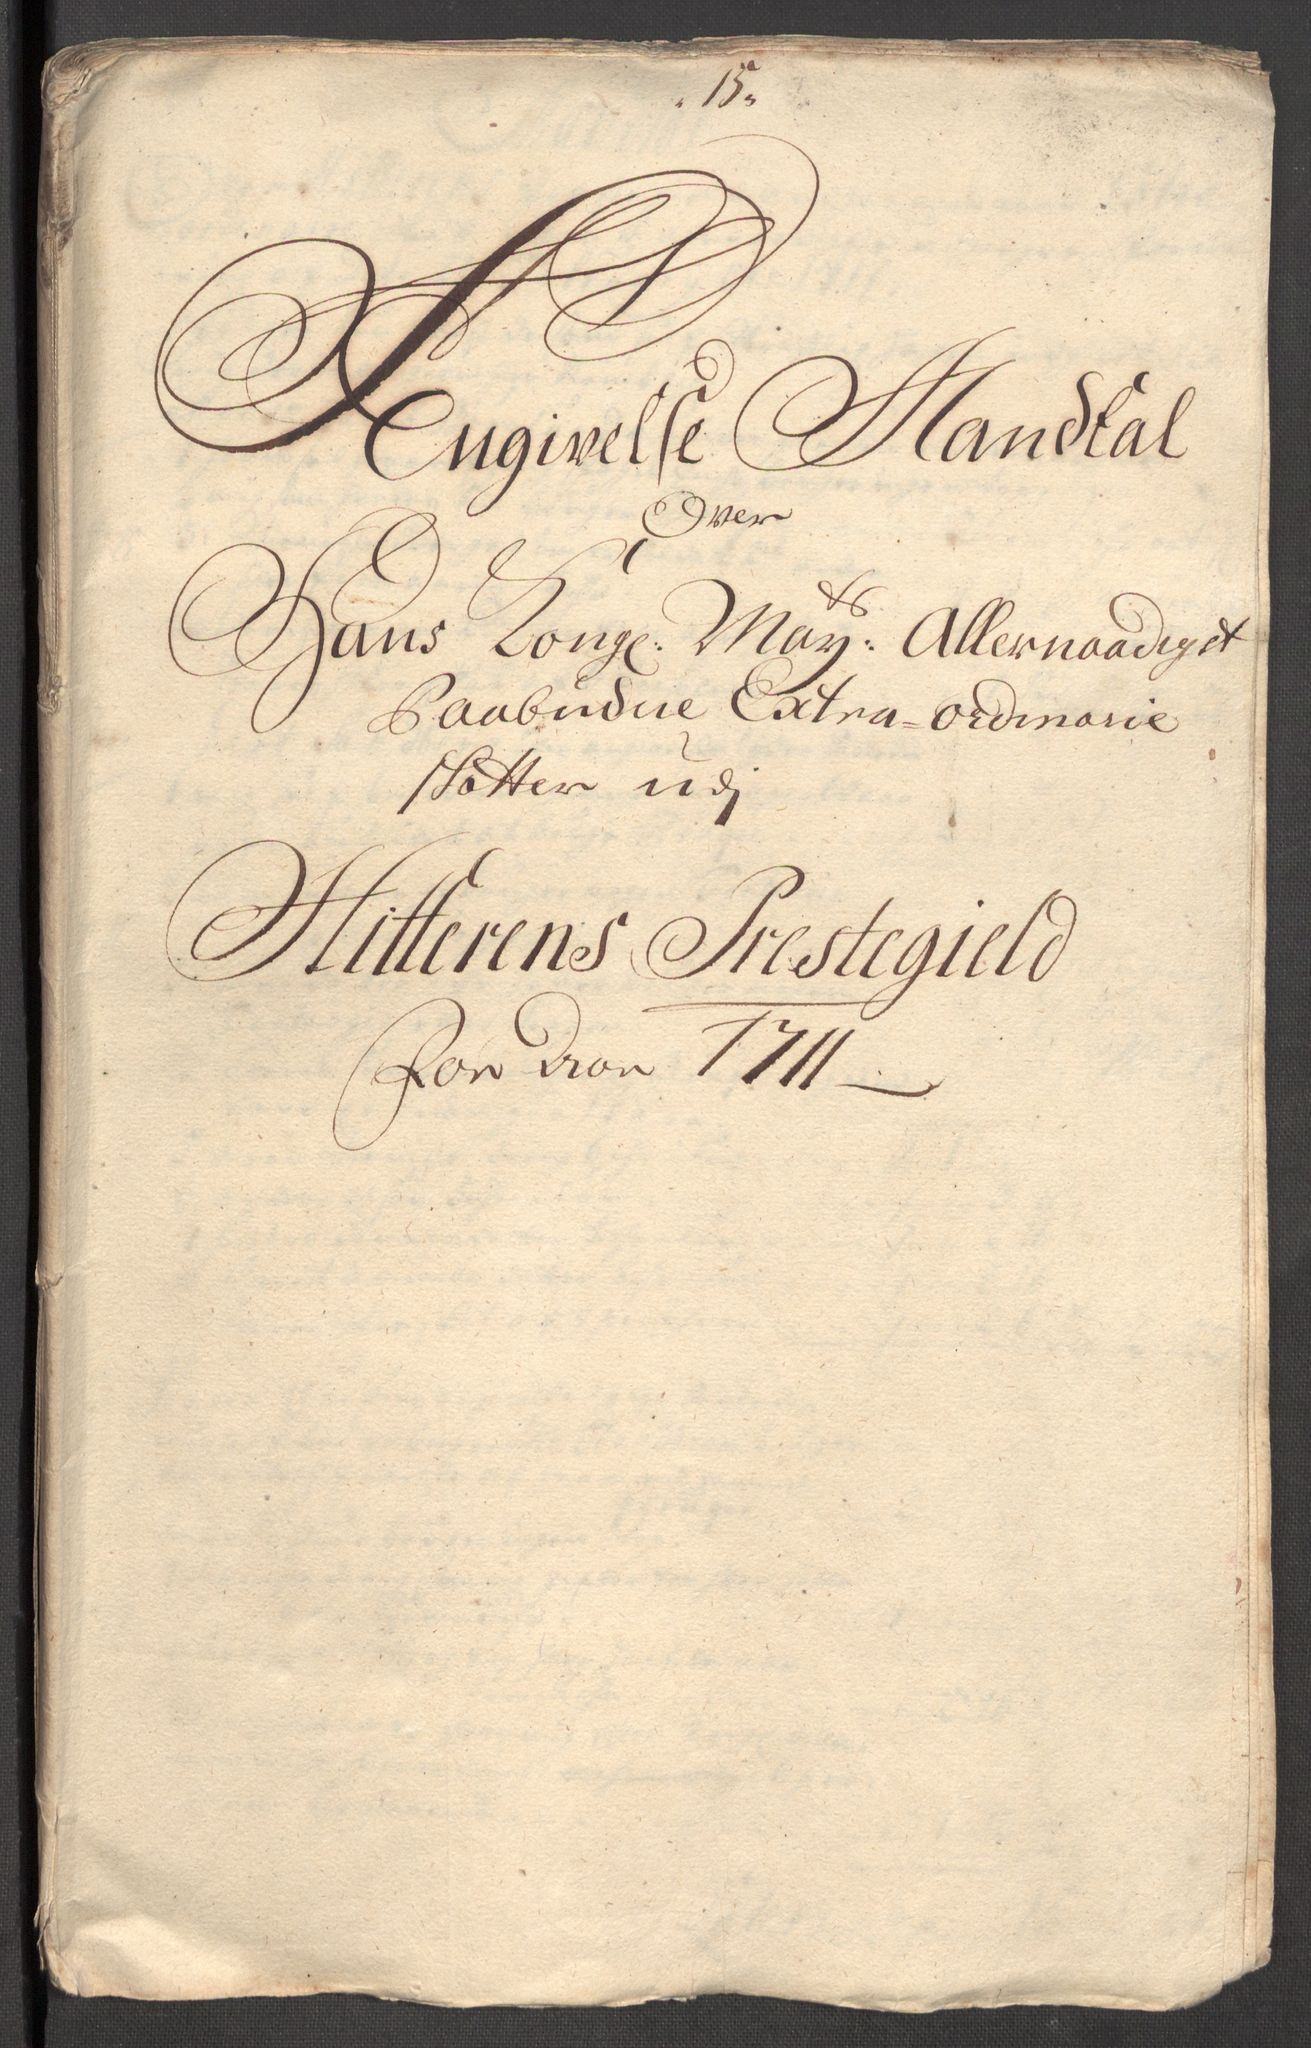 15.
Angivelse Mandtal
Over
Hans Kongl: May:ts Allernaadigst
Paabudne Extra=ordinarie
skatter udj
Hitterens Prestegield
For Aar 1711